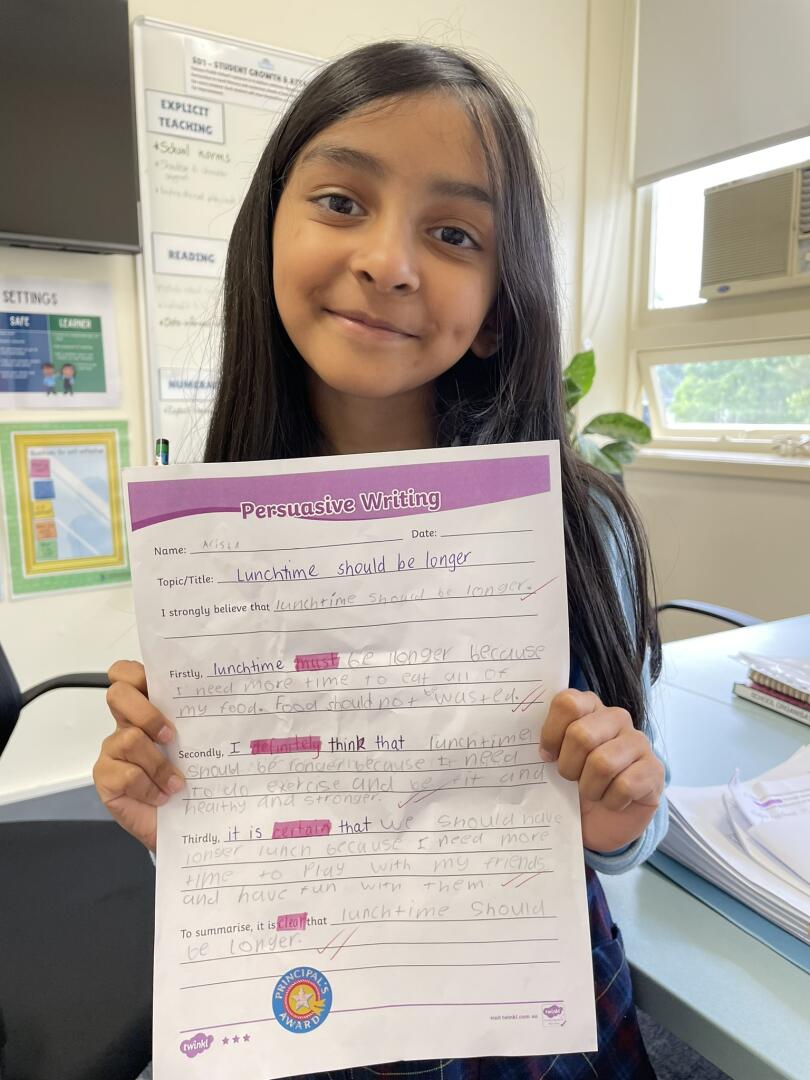 SD1 - STUDENT GROWTH &
EXPLICIT
TEACHING
*School norms
READING
NUMERA
SETTINGS
SAFE
LEARNER
Persuasive Writing
Name:
Date:
Topic/Title: Lunchtime should be longer
I strongly believe that lunchtime should be longer.
Firstly, lunchtime must be longer because
I need more time to eat all of
my food. Food should not be wasted.
Secondly, I definitely think that lunchtime
should be longer because I need
to do exercise and be fit and
healthy and stronger.
Thirdly, it is certain that we should have
longer lunch because I need more
time to play with my friends
and have fun with them.
To summarise, it is clear that lunchtime should
be longer.
PRINCIPAL'S
AWARD
twinkl
visit twinkl.com.au
twinkl